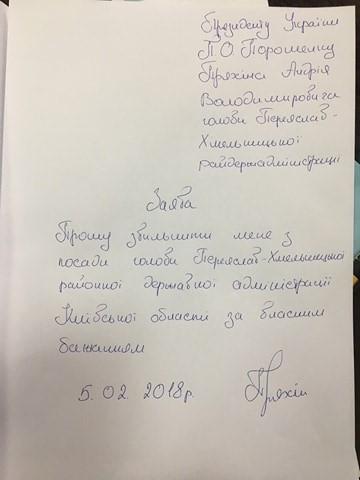 Президенту України
П О Порошенку
Пряхіна Андрія
Володимировича
голови Переяслав-
Хмельницької
райдержадміністрації
Заява
Прошу звільнити мене з
посади голови Переяслав-Хмельницької
районної державної адміністрації
Київської області за власним
бажанням
5. 02. 2018р.
Пряхін